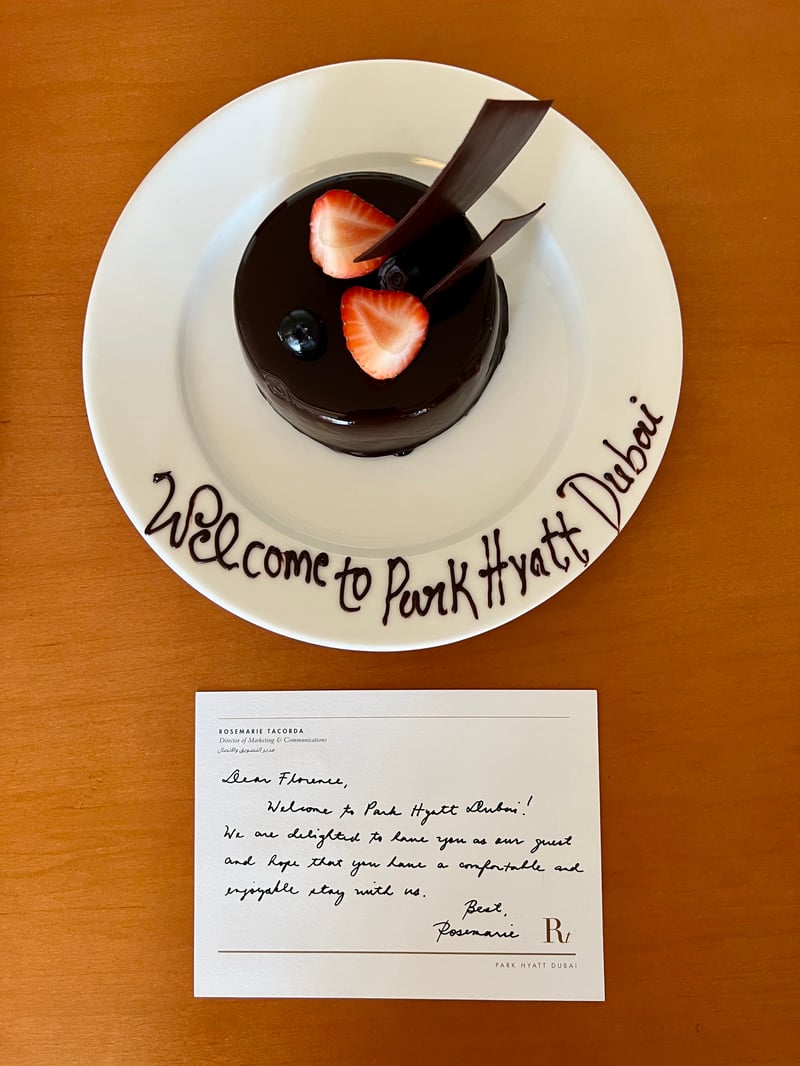 Welcome to Park Hyatt Dubai
ROSEMARIE TACORDA
Director of Marketing & Communications
مدير التسويق والاتصال
Dear Florence,
Welcome to Park Hyatt Dubai!
We are delighted to have you as our guest
and hope that you have a comfortable and
enjoyable stay with us.
Best,
Rosemarie
Rt
PARK HYATT DUBAI